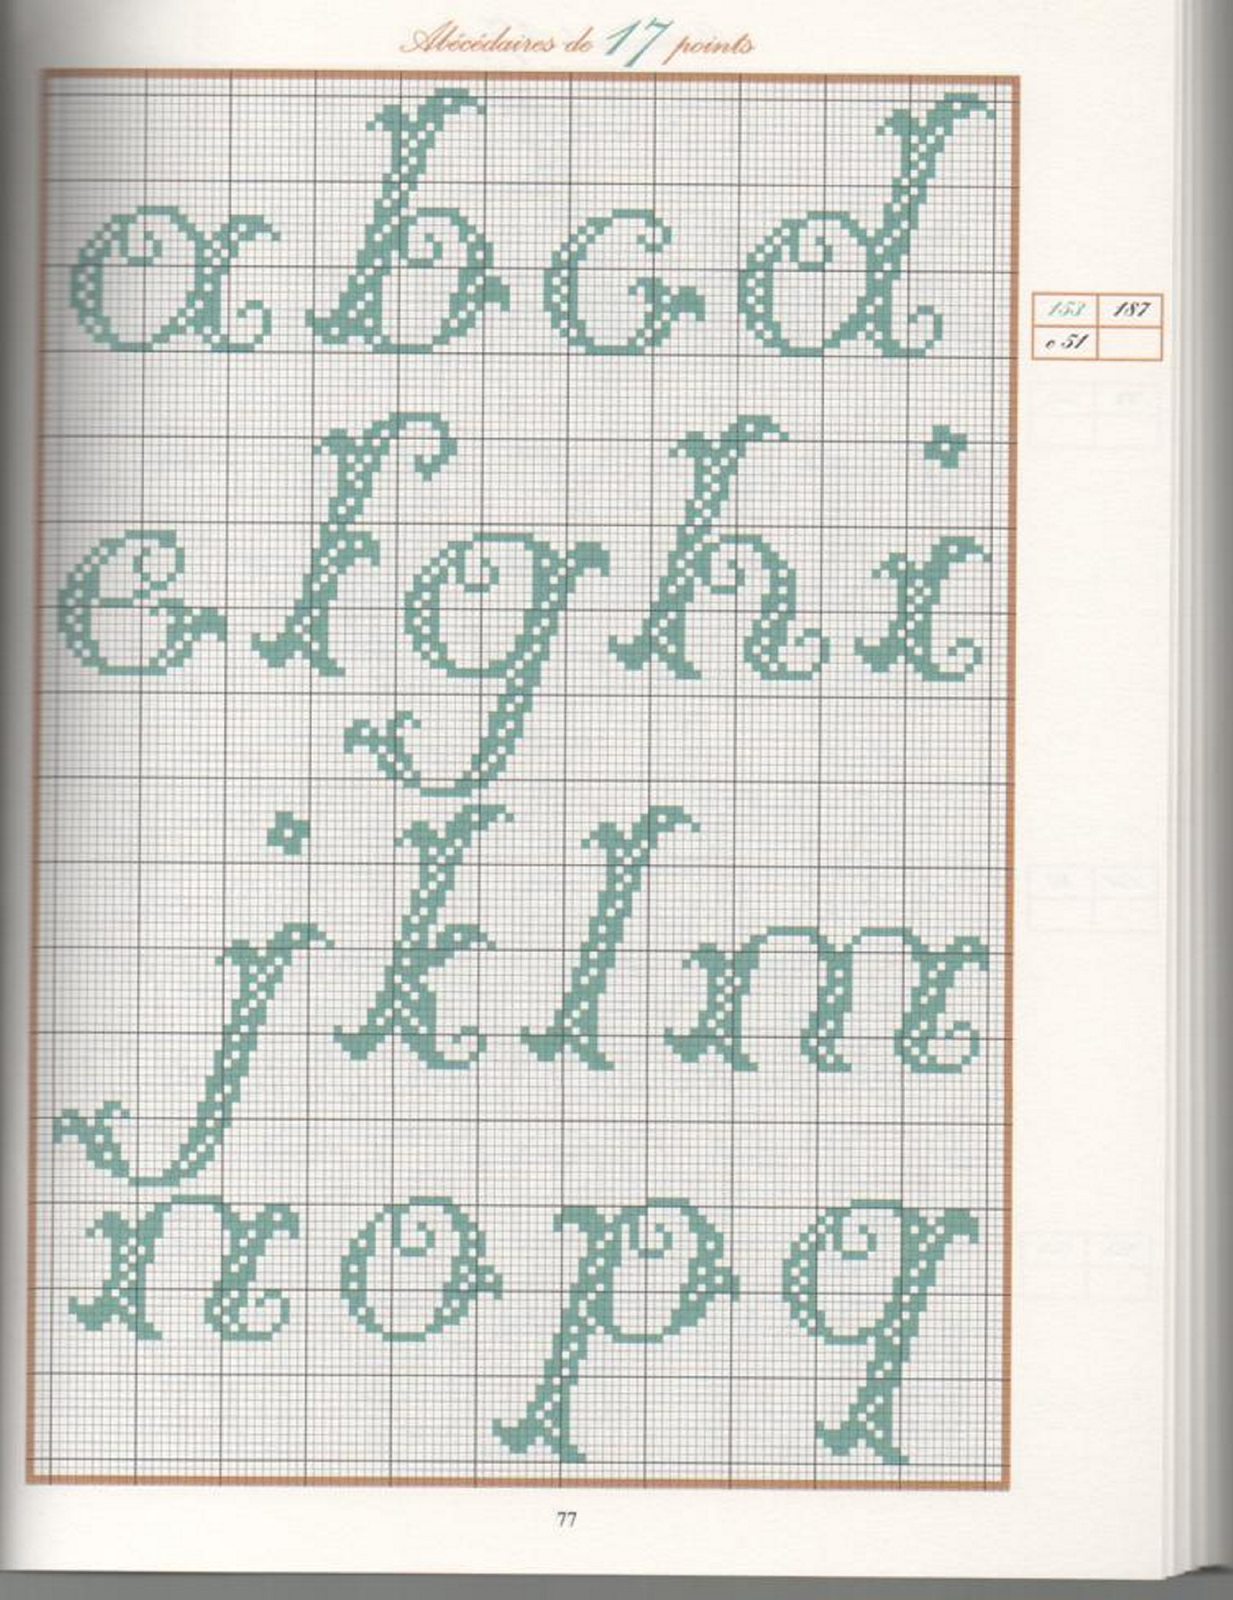 Abécédaires de 17 points
a b c d
153 187
e 51
e f g h i
j k l m
n o p q
77